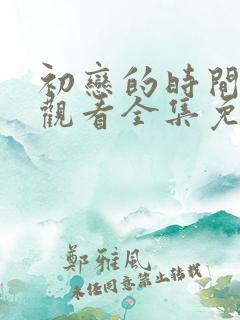 初戀的時間
觀看全集免
鄭雅風
未經同意禁止轉載